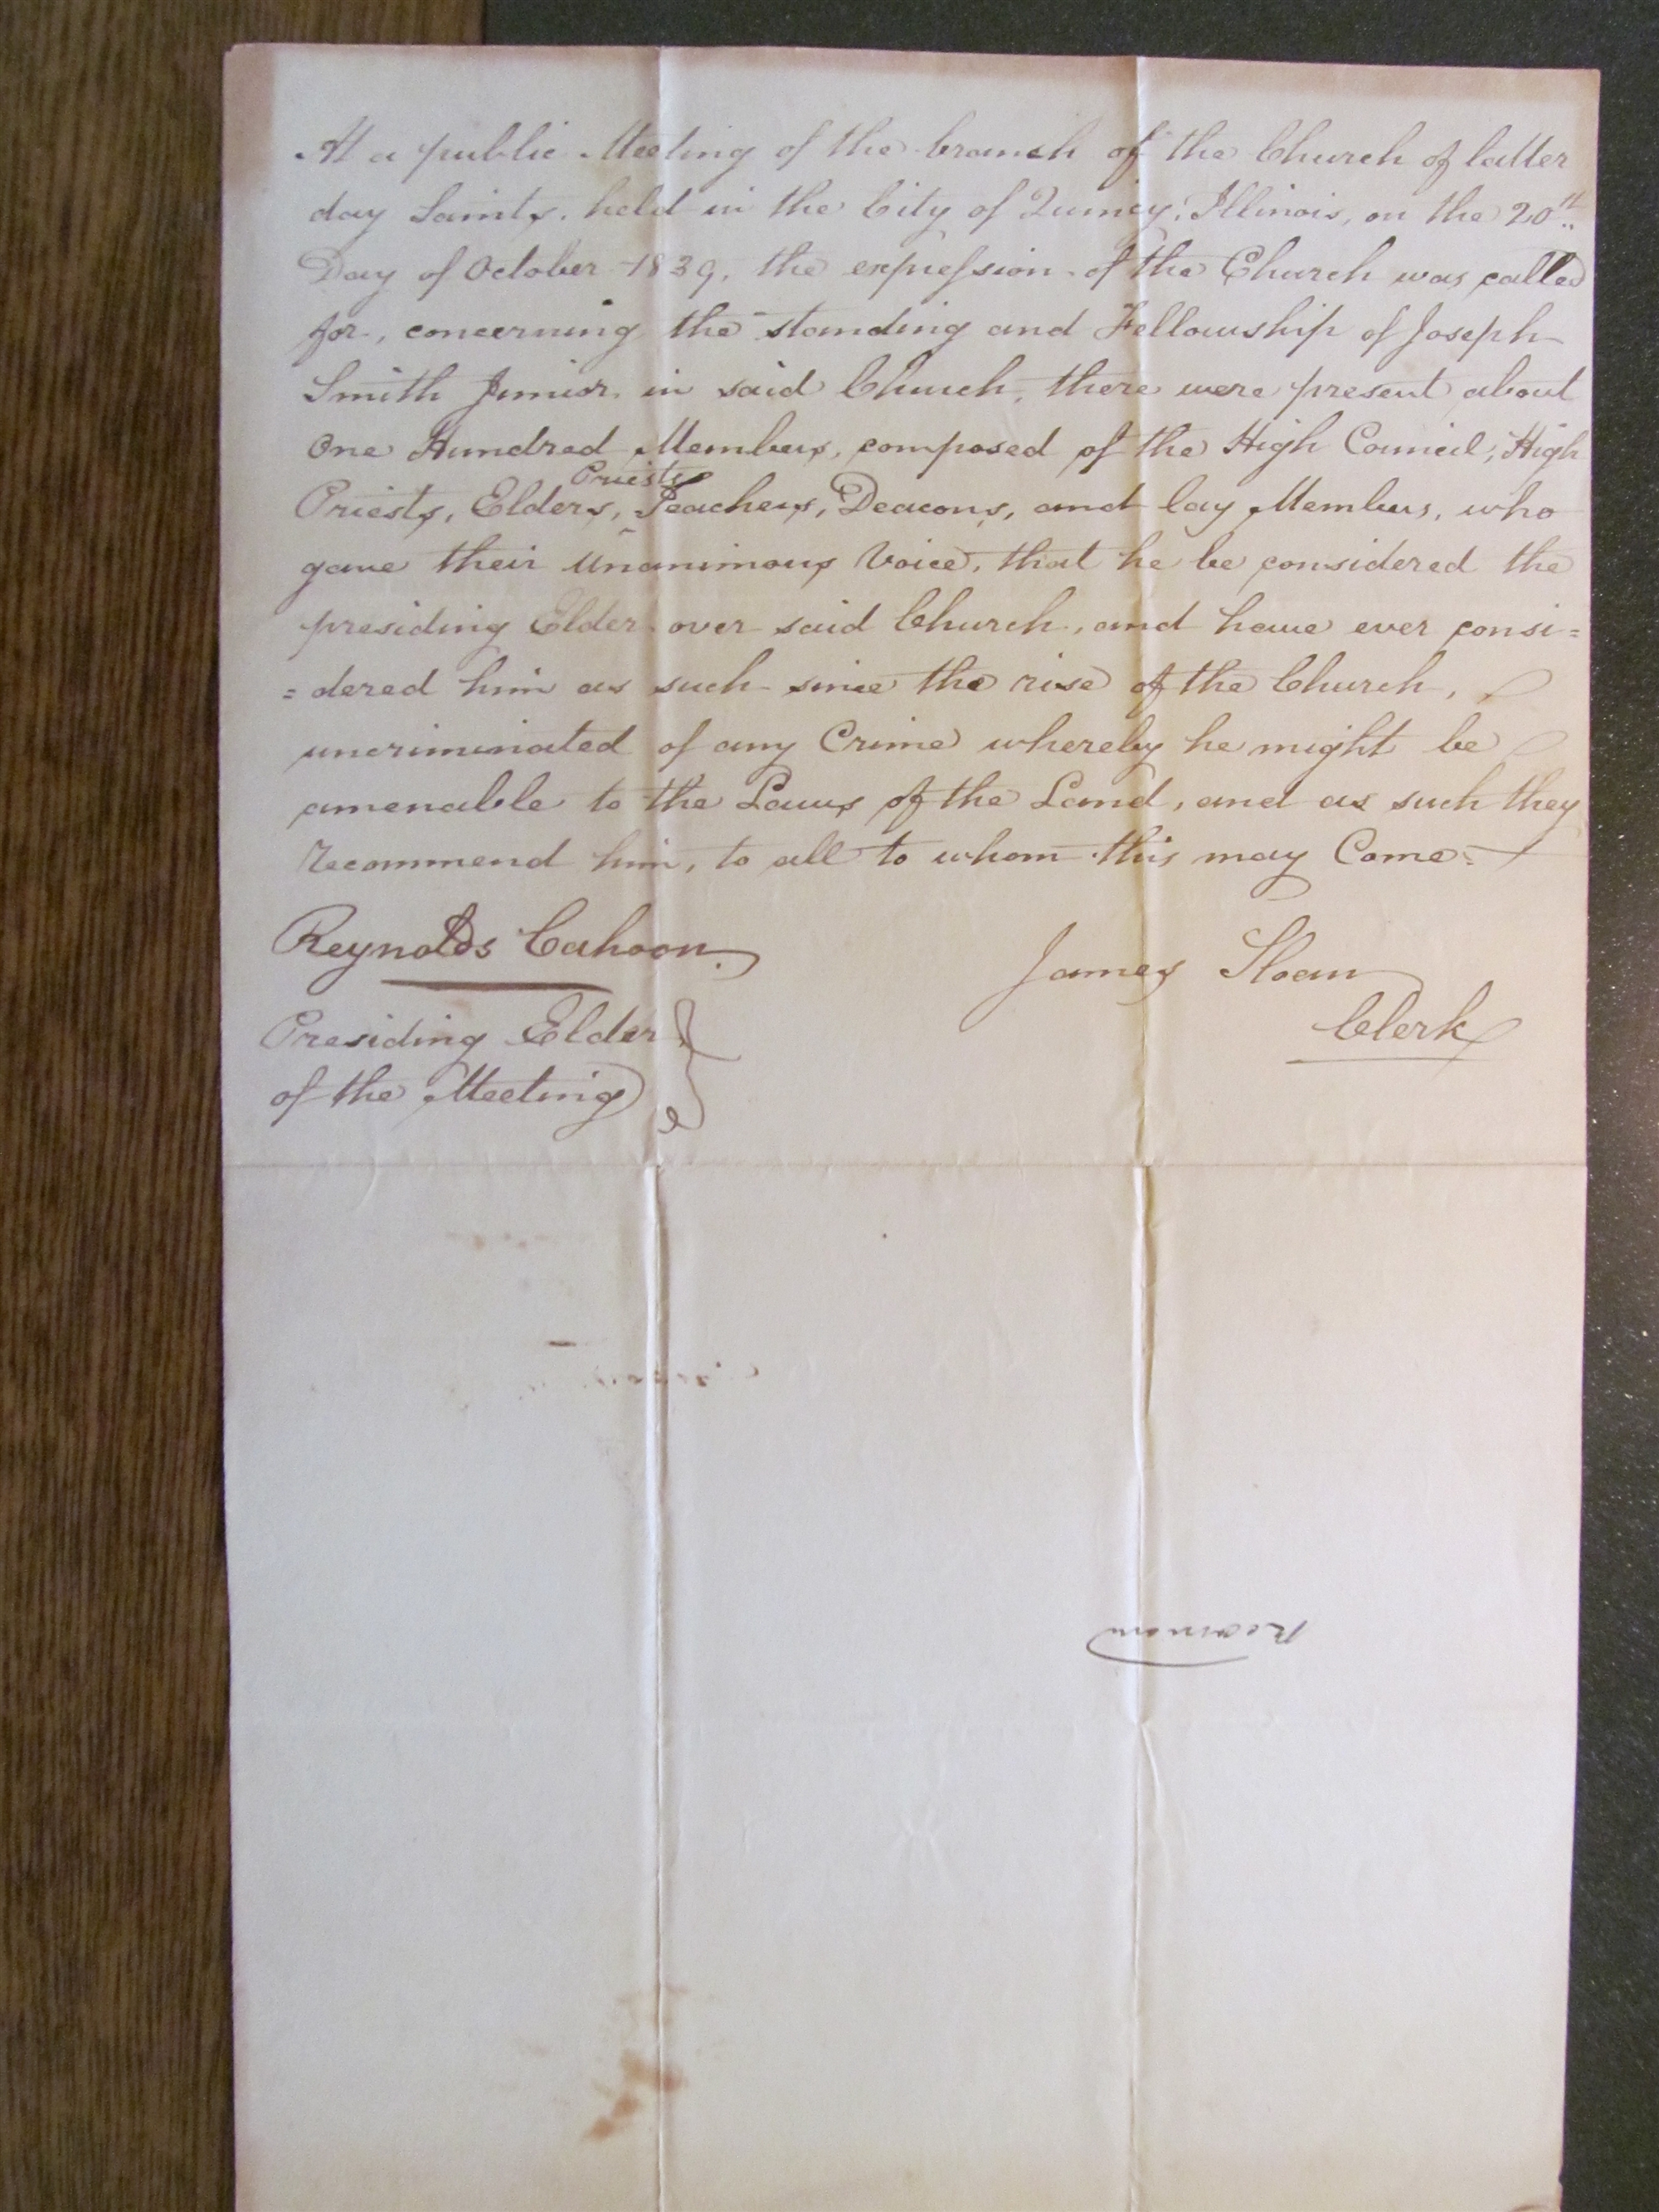 At a public Meeting of the branch of the Church of latter
day Saints, held in the City of Quincy, Illinois, on the 20th..
Day of October 1839, the expression of the Church was called
for, concerning the standing and Fellowship of Joseph
Smith Junior in said Church, there were present about
One Hundred Members, composed of the High Council, High
Priests
Priests, Elders, ‸Teachers, Deacons, and lay Members, who
gave their Unanimous Voice, that he be considered the
presiding Elder over said Church, and have ever consi=
=dered him as such since the rise of the Church,
uncriminated of any Crime whereby he might be
amenable to the Laws of the Land, and as such they
recommend him, to all to whom this may Come.
Reynolds Cahoon.
James Sloan
Presiding Elder
Clerk
of the Meeting